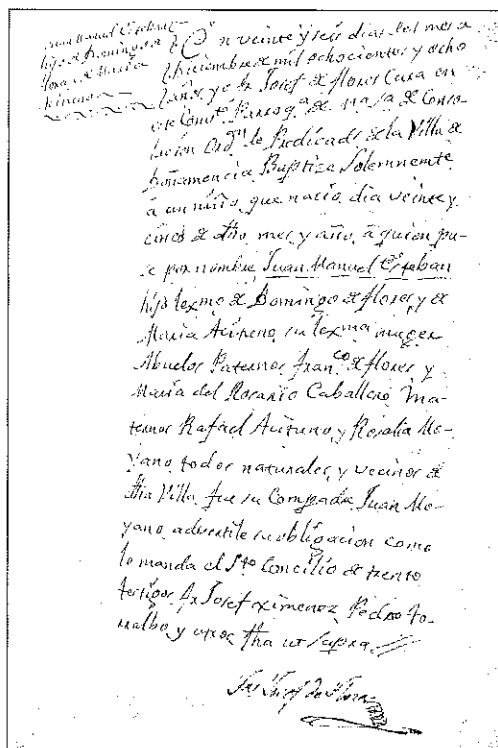 Juan Manuel Esteban
hijo de Domingo de
flores, y de María
En veinte y seis dias del mes de
Diciembre de mil ochocientos y ocho
años, yo Fr. Josef de flores Cura en
este Comvto Parroqa de nra sa de Conso-
lacion Ordn de Predicads de la Villa de
Doñamencia Baptize Solemnemte
á un niño que nacio dia veinte y
cinco de dho mes, y año, á quien pu-
se por nombre Juan Manuel Esteban
hijo lexmo de Domingo de flores, y de
María su lexma muger
Abuelos Paternos Franco de flores y
María del Rosario Caballero Ma-
ternos Rafael y Rosalia Mo-
yano, todos naturales, y vecinos de
dha Villa fue su Compadre Juan Mo-
yano, advertile su obligacion como
lo manda el Sto Concilio de trento
testigos Fr Josef ximenez, Pedro
y otros fha ut supra
Fr Josef de Flores